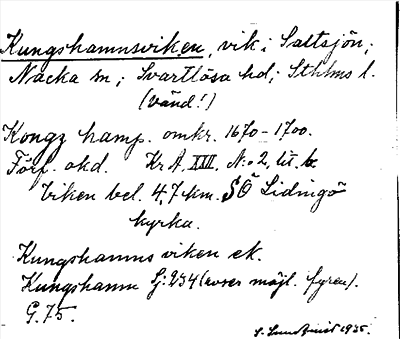 Kungshamnsviken, vik i Saltsjön;
Nacka sn; Svartlösa hd; Sthlms l.
(vänd!)
Kongz hamp. omkr. 1670-1700.
Förf. okd. Kr A. XXII. N:o 2, lit. b
Viken bel. 4,7 km. SÖ Lidingö
kyrka.
Kungshamns viken ek.
Kungshamn Sj: 234 (avser möjl. fyren).
G. 75.
S. Lundquist 1935.